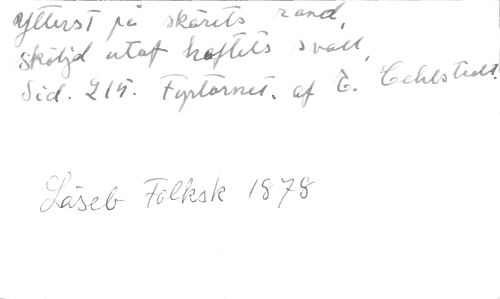 Ytterst på skärets rand,
sköljd utaf hafvets svall,
Sid. 215. Fyrtornet. af E. Cehlstedt.
Läseb Folksk 1878